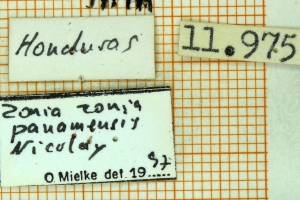 Honduras
11.975
Zonia zonia
panamensis
Nicolay
87
O Mielke det. 19